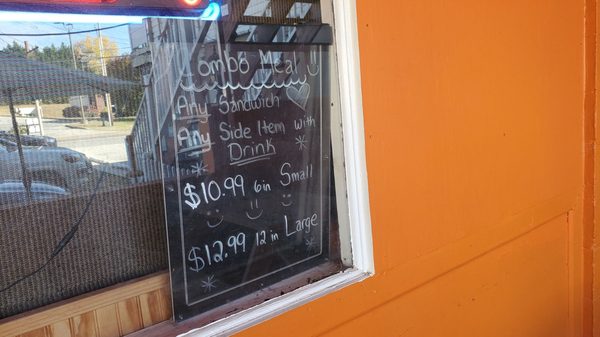 Combo Meal
Any Sandwich
Any Side Item with
Drink
$10.99 6 in Small
$12.99 12 in Large